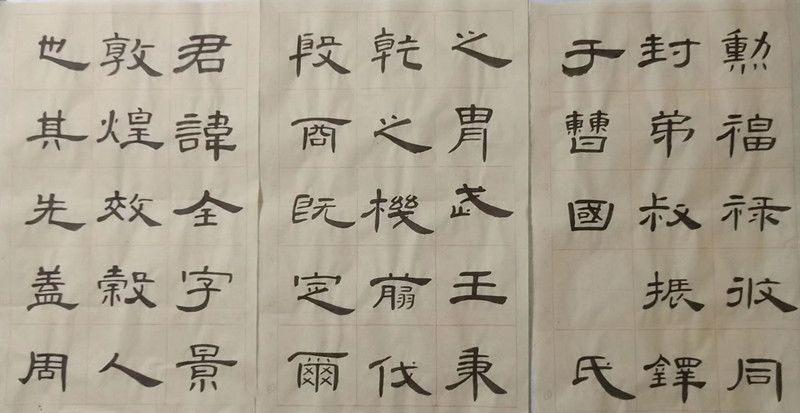 君諱全字景
敦煌效穀人
也其先蓋周
之胄武王秉
乾之機翦伐
殷商既定爾
勳福禄攸同
封弟叔振鐸
于曹國氏